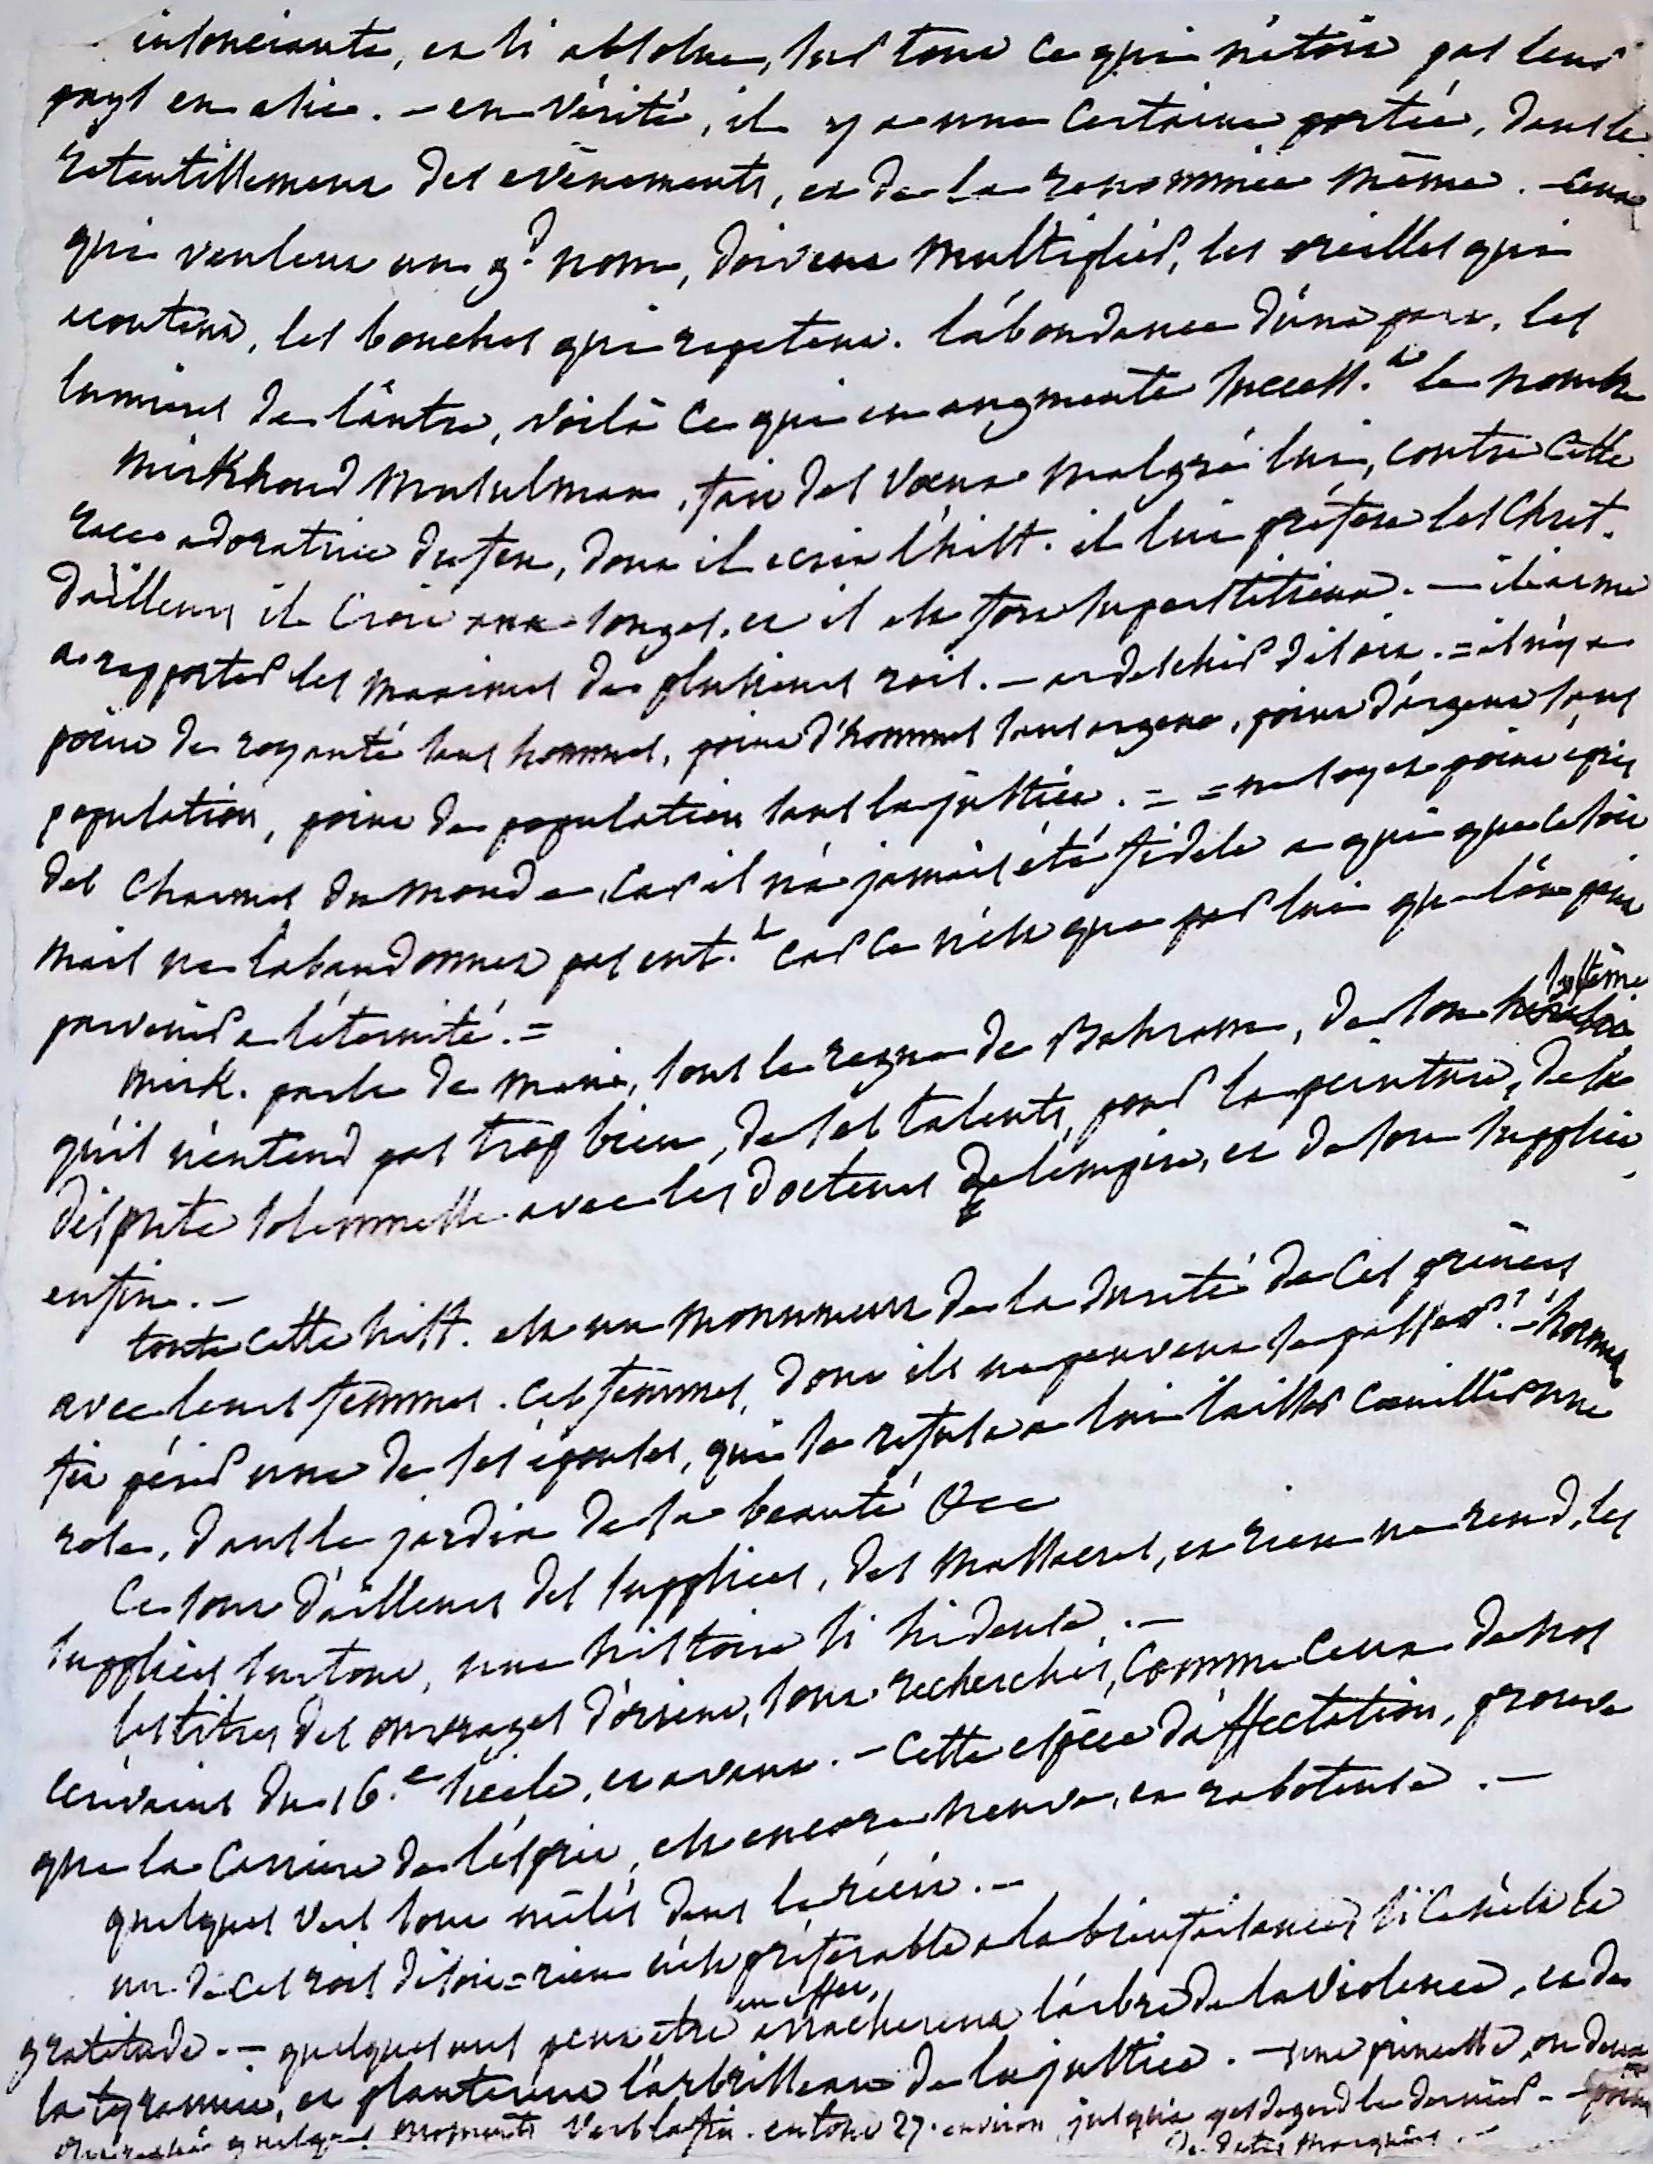 insouciante, et si absolue, sur tout ce qui n'étoit pas leur
pays en asie. - en vérité, il y a une certaine portée, dans le
retentissement des evènements, et de la renommée même. - ceux
qui veulent un gd nom, doivent multiplier, les oreilles qui
ecoutent, les bouches qui repetent. l'abondance d'une part, les
lumieres de l'autre, voilà ce qui en augmente success.t le nombre
Mirkhond Musulman, fait des vœux malgré lui, contre cette
race adoratrice du feu, dont il ecrit l'hist. il lui préfère les Chret.
d'ailleurs il croit aux songes, et il est fort superstitieux. - il aime
a rapporter les maximes de plusieurs rois. - ardeschir disoit. = il n'y a
point de royauté sans hommes, point d'hommes sans argent, point d'argent sans
population, point de population sans la justice. = = ne soyez point épris
des charmes du monde, car il n'a jamais été fidele a qui que ce soit
mais ne l'abandonnez pas ent.t car ce n'est que par lui que l'on peut
parvenir a l'éternité. =
Mirk. parle de mani, sous le regne de Bahram, de son système
qu'il n'entend pas trop bien, de ses talents, pour la peinture, de la
dispute solemnelle avec les docteurs de l'empire, et de son supplice
enfin. -
toute cette hist. est un monument de la dureté de ces princes
avec leurs femmes. ces femmes, dont ils ne peuvent se passer! - hormuz
fit périr une de ses épouses, qui se refusa a lui laisser cueillir une
rose, dans le jardin de sa beauté &cc
Ce sont d'ailleurs des supplices, des massacres, et rien ne rend, les
supplices surtout, une histoire si hideuse. -
les titres des ouvrages d'orient, sont recherchés, comme ceux de nos
ecrivains du 16.e siecle, et avant. - cette espèce d'affectation, prouve
que la carriere de l'esprit, est encore neuve, et raboteuse. -
quelques vers sont mêlés dans le récit. -
un de ces rois disoit = rien n'est préférable a la bienfaisance, si ce n'est la
gratitude. - quelques uns peut etre en effet, arracherent l'arbre de la violence, et de
la tyrannie, et planterent l'arbrisseau de la justice. - une princesse,
quelques moments vers la fin. environ jusqu'a yesdegerd le dernier -